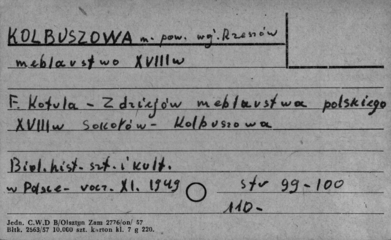 KOLBUSZOWA m. pow. woj. Rzeszów
meblarstwo XVIIIw
F. Kotula - Z dziejów meblarstwa polskiego
XVIIIw Sokołów - Kolbuszowa
Biul. hist. szt. i kult.
w Polsce - rocz. XI. 1949 str 99-100
110-
Jedn. C.W.D B/Olsztyn Zam 2776/on/ 57
Bltk. 2563/57 10.000 szt. karton kl. 7 g 220.